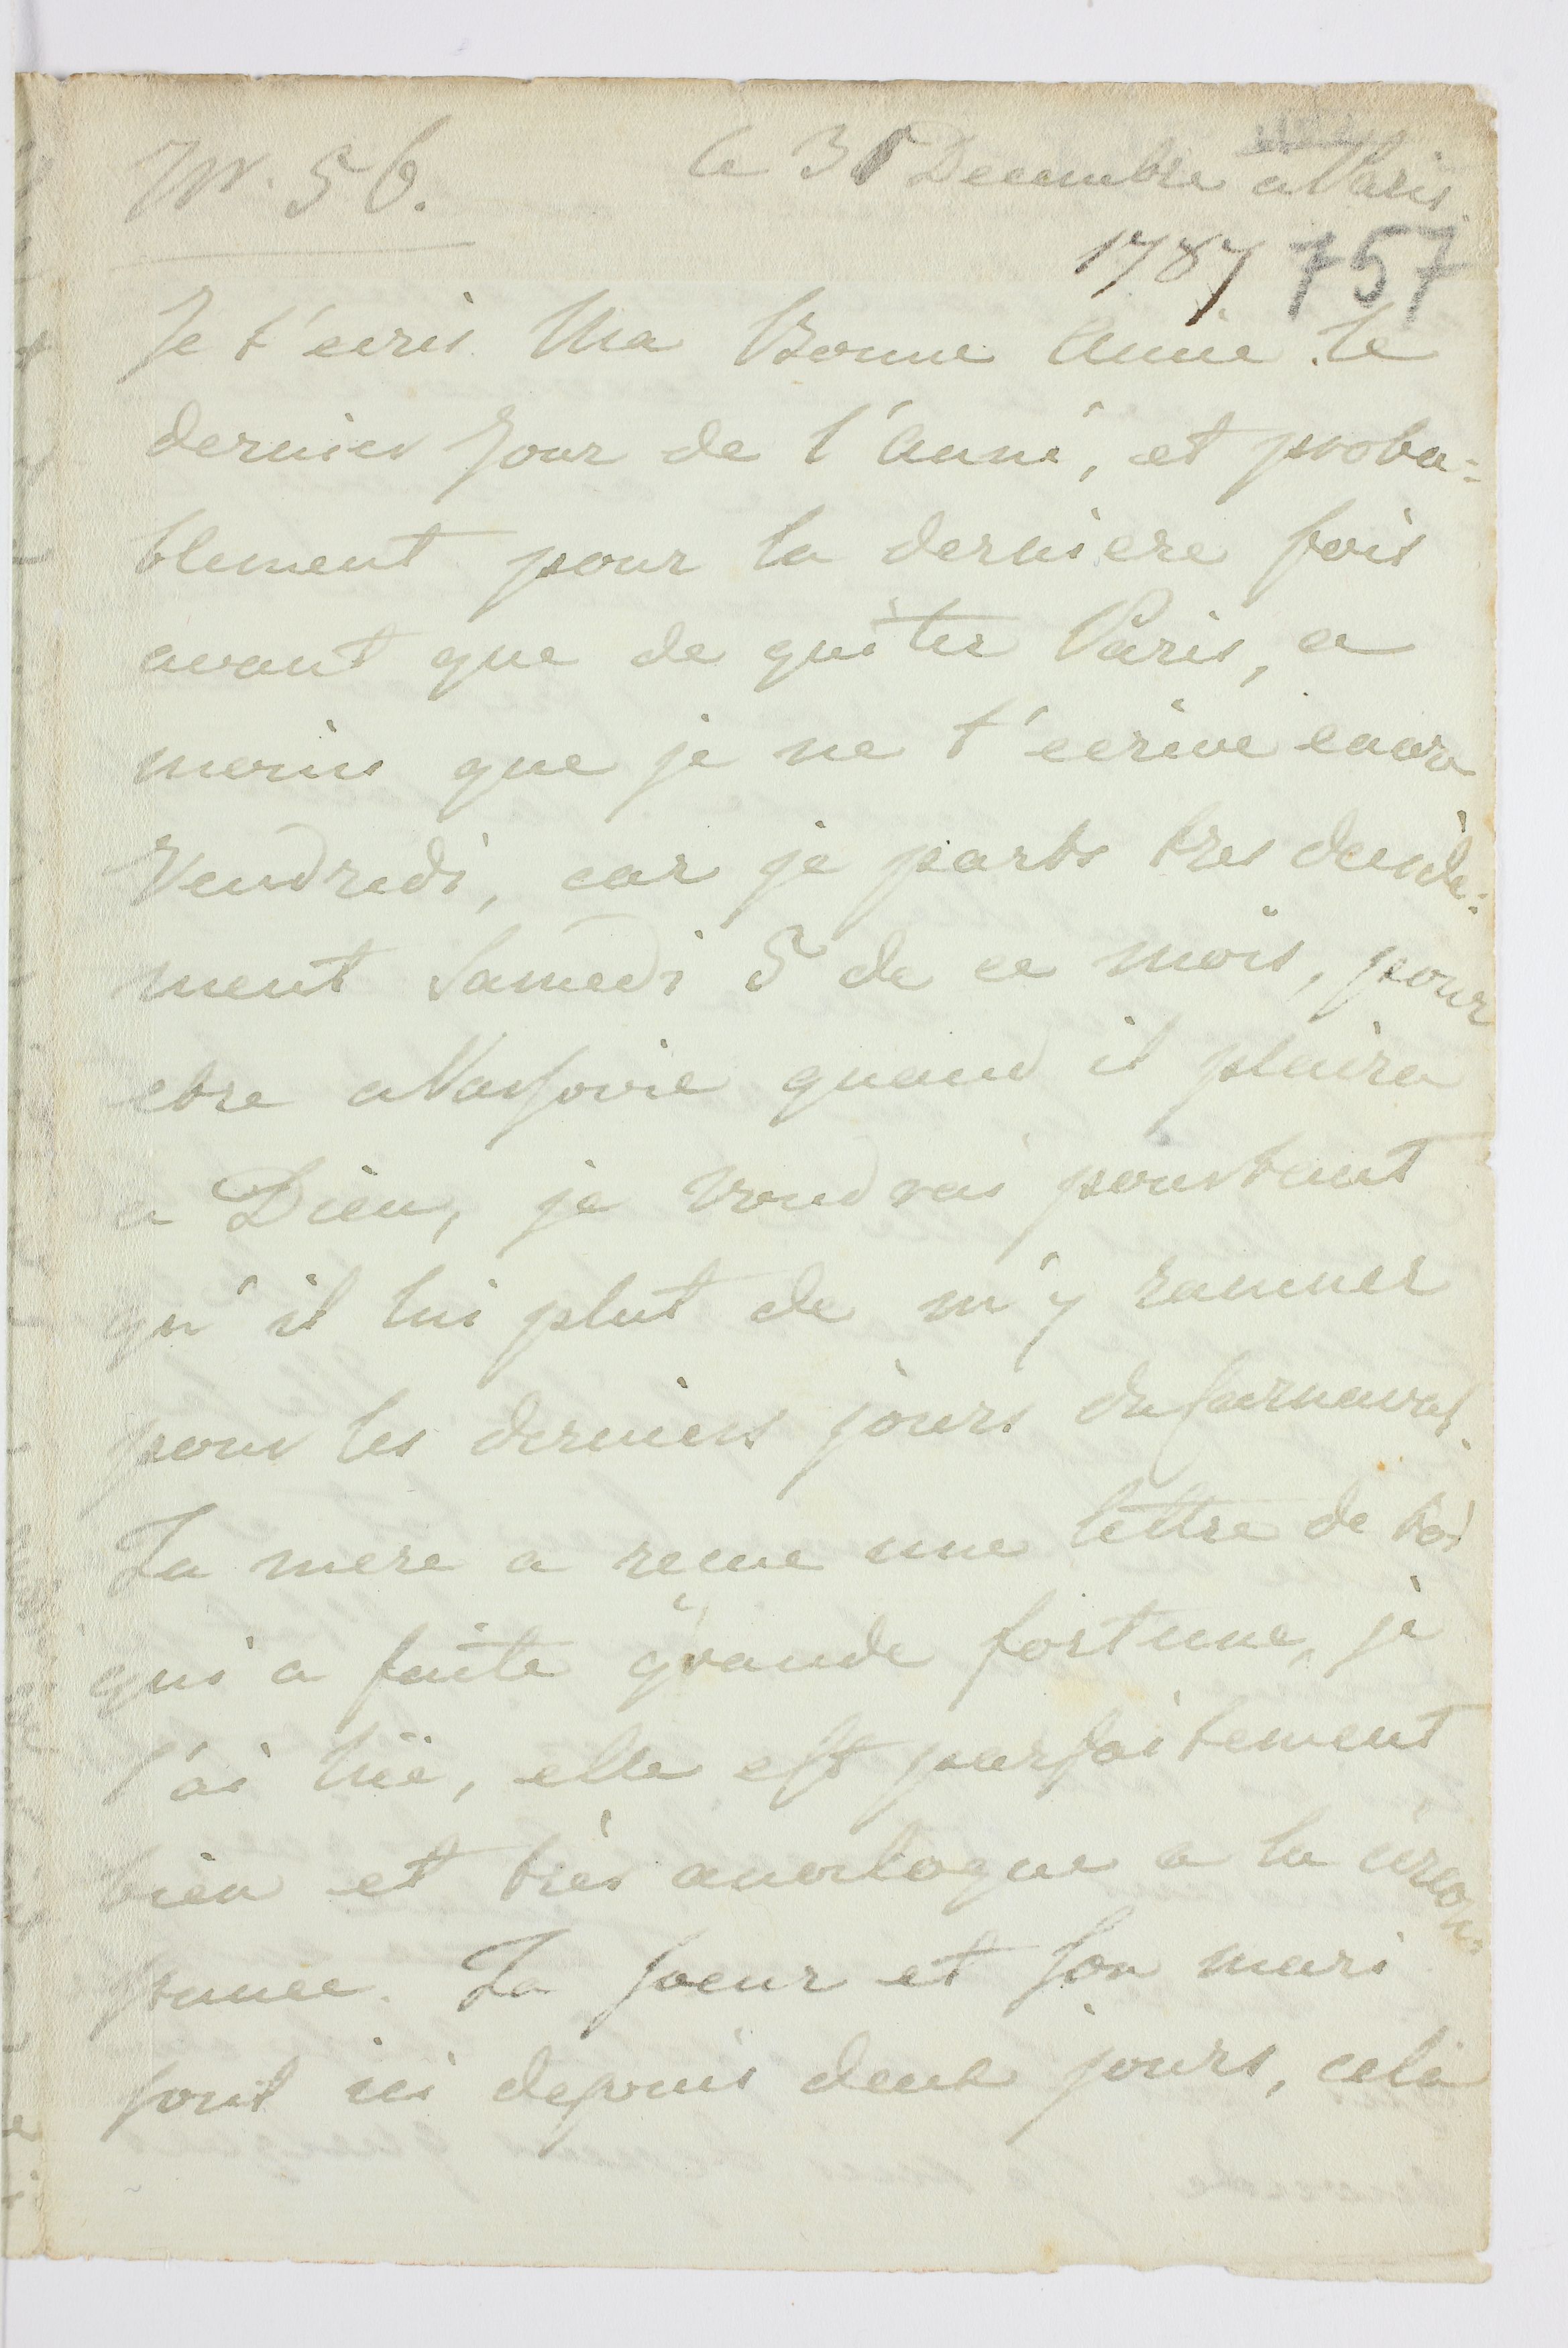 Nr. 56.
le 31 Decembre a Paris
1787 757
Je t'ecris Ma Bonne Amie le
dernier Jour de l'Anné, et proba=
blement pour la derniere fois
avant que de quitter Paris, a
moins que je ne t'ecrive encor
Vendredi, car je parts tres decide=
ment Samedi 5 de ce mois, pour
etre a Varsovie quand il plaira
a Dieu, je voudrai pourtant
qu'il lui plut de m'y ramner
pour les derniers jours du Carnaval.
Ta mere a recue une lettre de toi
qui a faite grande fortune, je
l'ai luë, elle est parfaitement
bien et très anologue a la circon=
stance. Ta soeur et son mari
sont ici depuis deux jours, cela